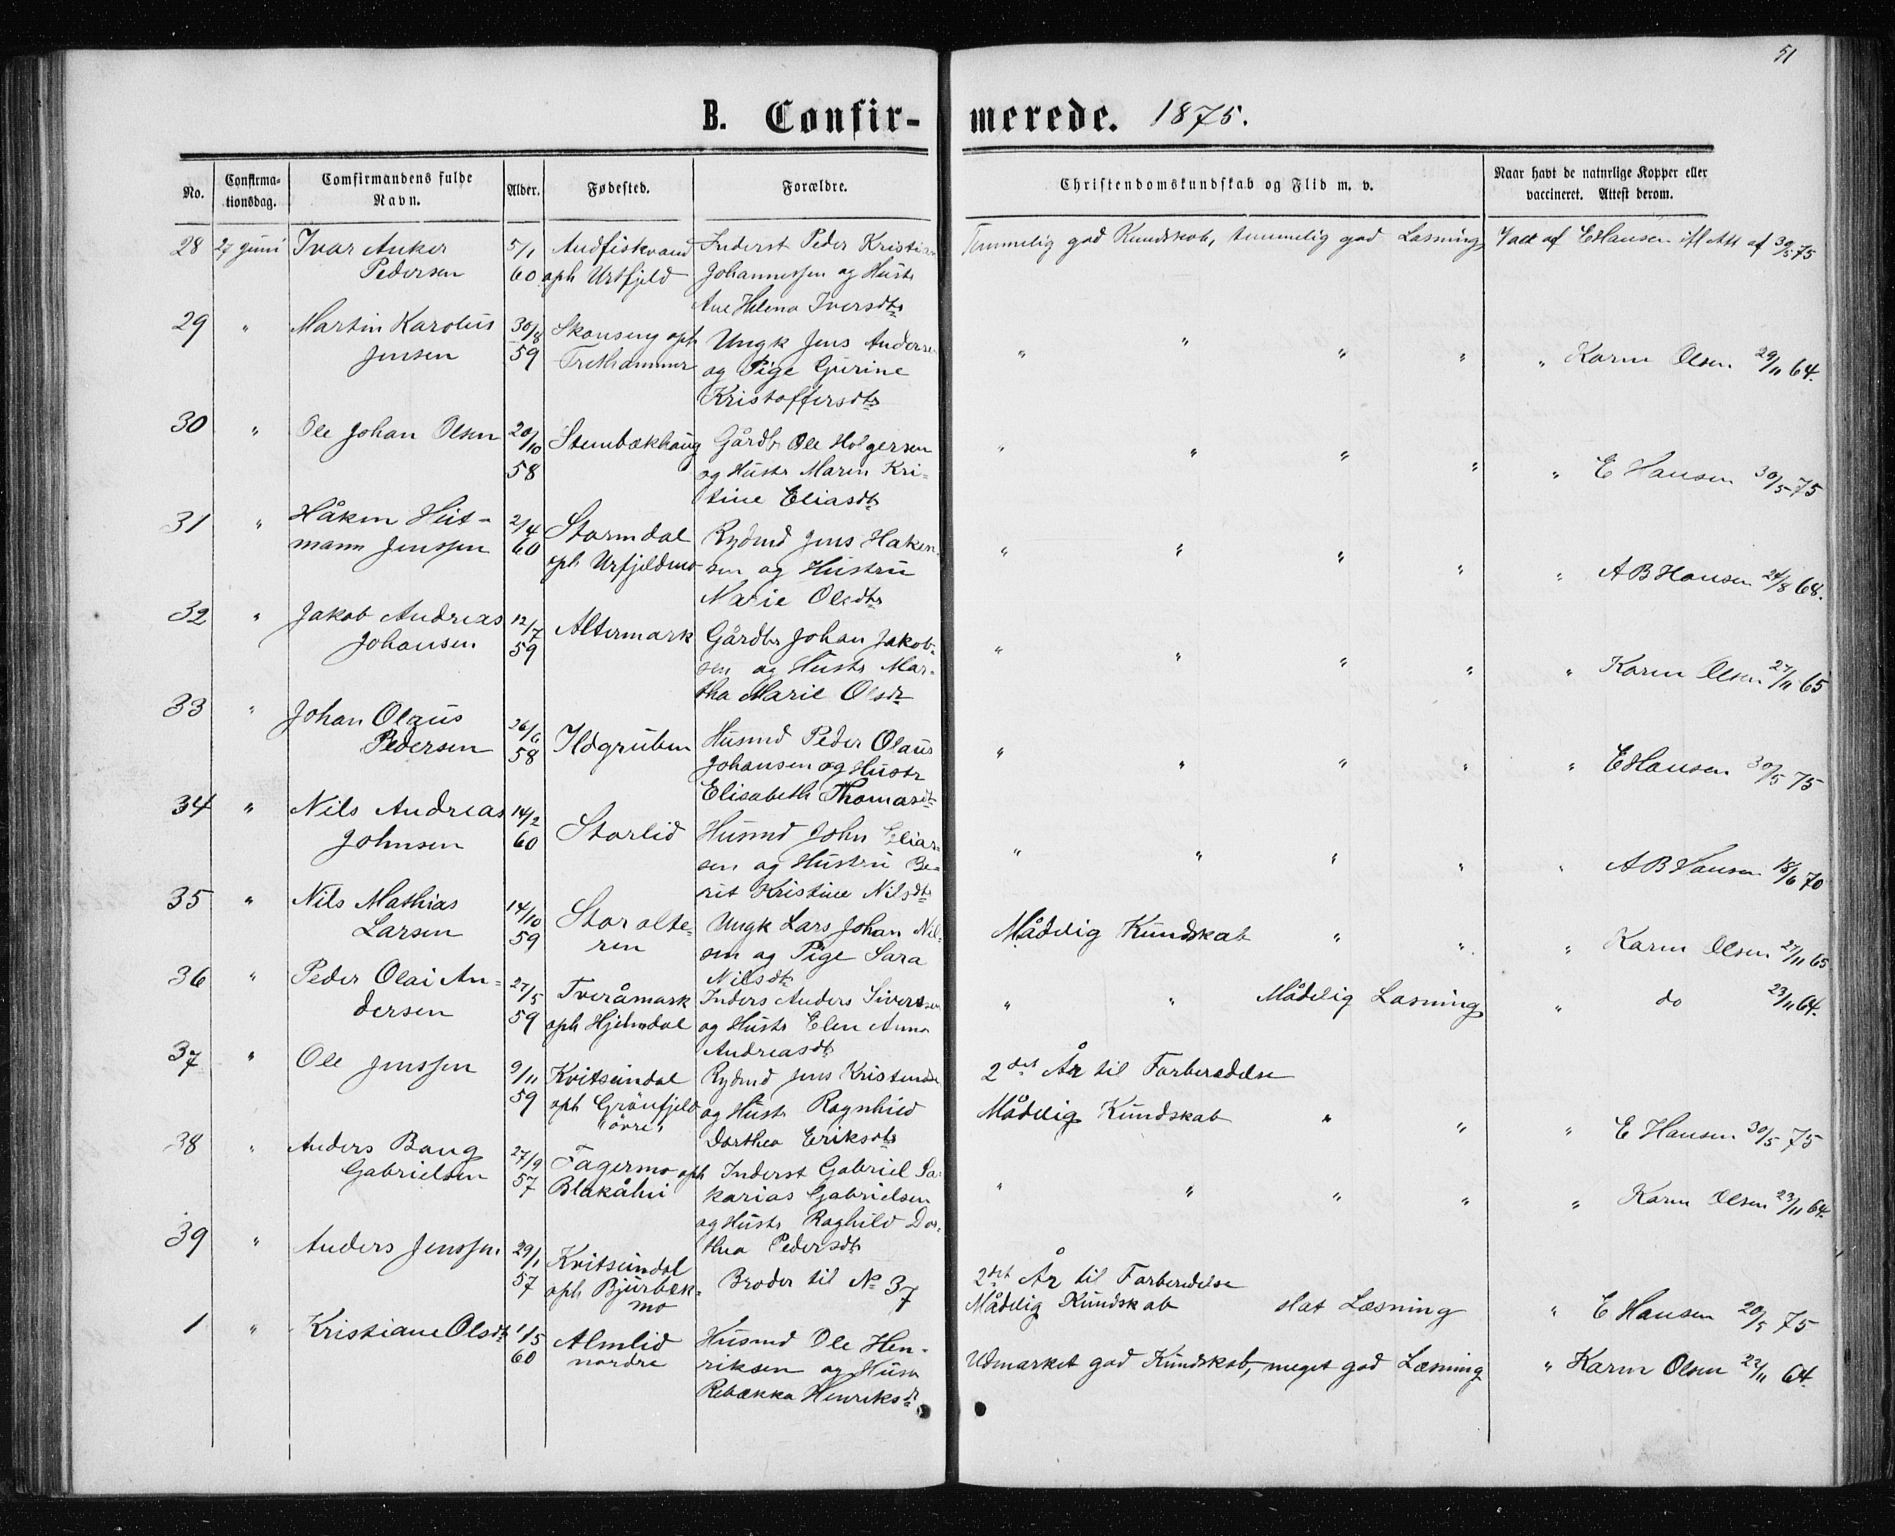 51
B. Confirmerede. 1875.
No. Confirmationsdag. Comfirmandens fulde Navn. Alder. Fødested. Forældre. Christendomskundskab og Flid m. v. Naar havt de naturlige Kopper eller vaccineret. Attest derom.
28 27 Juni Ivar Anker 5/1 Andfiskvand Inderst Peder Kristian Temmelig god Kundskab, temmelig god Læsning Vacc af E Hansen Att af 30/5 75
Pedersen 60 oph Urtfjeld Johannessen og Hustr
Ane Helena Iversdtr
29 " Martin Karolus 30/8 Skonseng oph Ungk Jens Anderse " " " " " Karen Olsen 29/11 64.
Jensen 59 Trethammer og Pige Gurine
Kristoffersdtr
30 " Ole Johan Olsen 20/10 Stenbækhaug Gårdb Ole Holgersen " " " " " E Hansen 30/5 75
58 og Hustr Maren Kri-
stine Eliasdtr
31 " Håken Heit- 2/4 Stormdal Rydmd Jens Haken- " " " " " A B Hansen 24/8 68.
mann Jenssen 60 oph Urfjeldmo sen og Hustru
Marie Olsdtr
32 " Jakob Andreas 12/7 Altermark Gårdbr Johan Jakob- " " " " " Karen Olsen 27/11 65
Johansen 59 sen og Hustr Mar-
tha Marie Olsdtr
33 " Johan Olaus 26/6 Ildgruben Husmd Peder Olaus " " " " " E Hansen 30/5 75
Pedersen 58 Johansen og Hustr
Elisabeth Thomasdtr
34 " Nils Andreas 14/2 Storlid Husmd John Elias- " " " " " A B Hansen 18/6 70
Johnsen 60 sen og Hustru Be-
rit Kristine Nilsdtr
35 " Nils Mathias 14/10 Storalte- Ungk Lars Johan Nil- Mådelig Kundskab " " " Karen Olsen 27/11 65
Larsen 59 ren sen og Pige Sara
Nilsdtr
36 " Peder Olai An- 27/5 Tveråmark Inders Anders Siversen " " Mådelig Læsning " do 23/11 64.
dersen 59 oph Hjelmdal og Hustr Elen Anna
Andreasdtr
37 " Ole Jenssen 9/11 Kvitseindal Rydmd Jens Kristens 2det År til Forberedelse
59 oph Grönfjeld og Hustr Ragnhild Mådelig Kundskab " " " E Hansen 30/5 75
övre Dorthea Eriksdtr
38 " Anders Bang 27/9 Fagermo oph Inderst Gabriel Sa- " " " " " Karen Olsen 23/11 64.
Gabrielsen 57 Blakåhei karias Gabrielsen
og Hustr Raghild Dor-
thea Pedersdtr
39 " Anders Jenssen 29/1 Kvitseindal Broder til No 37 2det År til Forberedelse
57 oph Bjurbæk- Mådelig Kundskab slet Læsning " E Hansen 20/5 75
mo
1 " Kristiane Olsdtr 1/5 Almlid Husmd Ole Hen- Udmærket god Kundskab, meget god Læsning " Karen Olsen 22/11 64.
60 nordre riksen og Hustr
Rebækka Henriksdtr